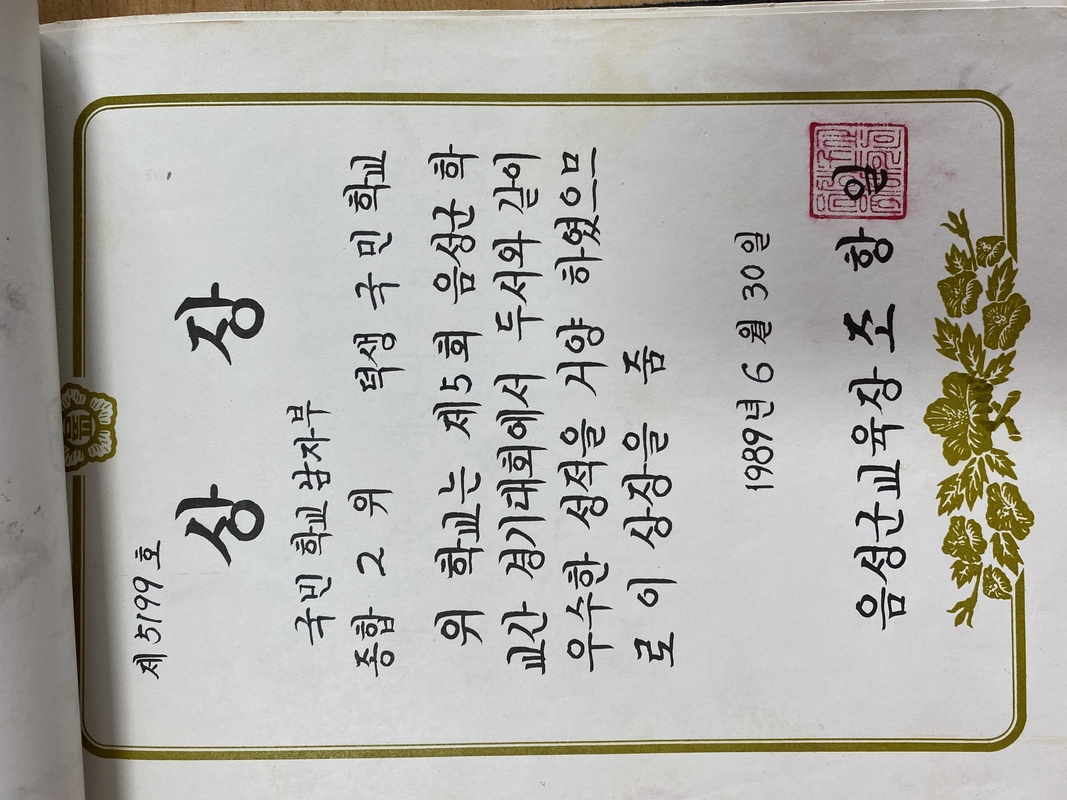 제 5199 호
상 장
국민 학교 남자부
종합 2 위
덕생 국민 학교
위 학교는 제5회 음성군 학
교간 경기대회에서 두서와 같이
우수한 성적을 거양 하였으므
로 이 상장을 줌
1989년 6 월 30 일
음성군교육장 조 항 일